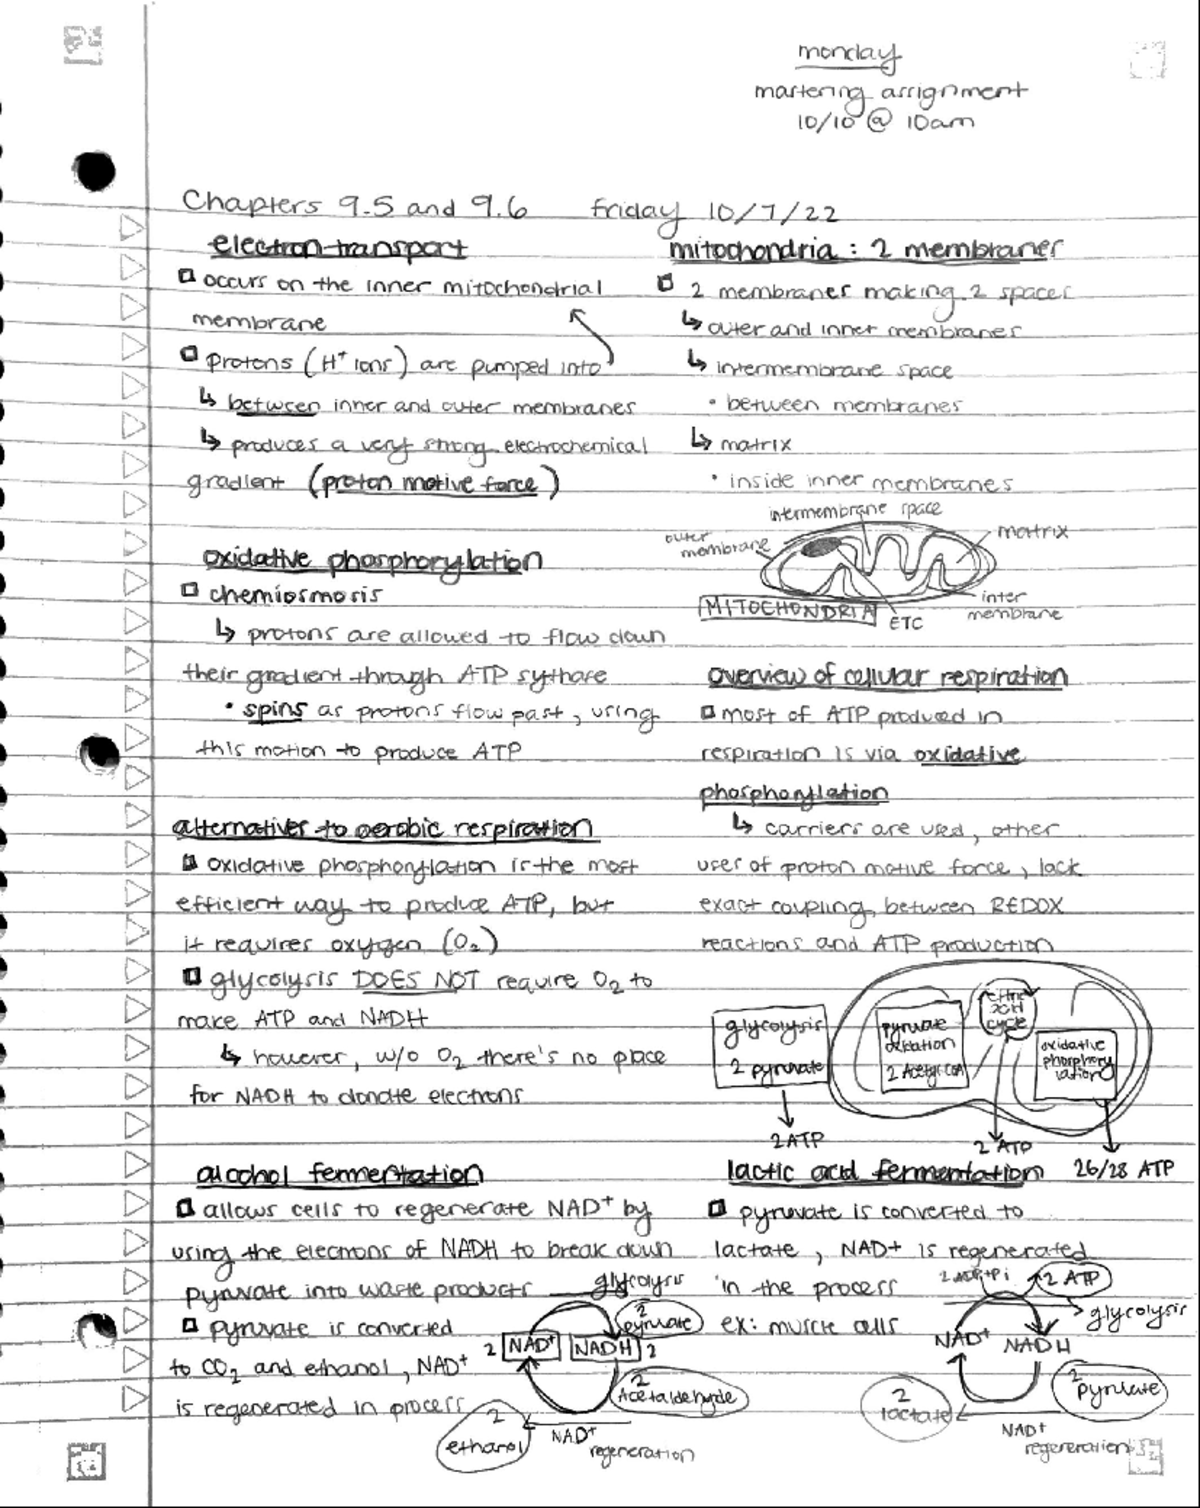 monday
mastering assignment
10/10 @ 10am
Chapters 9.5 and 9.6 Friday 10/7/22
electron transport
□ occurs on the inner mitochondrial
membrane
□ protons (H+ ions) are pumped into
↳ between inner and outer membranes
↳ produces a very strong electrochemical
gradient (proton motive force)
mitochondria : 2 membranes
□ 2 membranes making 2 spaces
↳ outer and inner membranes
↳ intermembrane space
• between membranes
↳ matrix
• inside inner membranes
intermembrane space
outer
membrane
matrix
inter
membrane
MITOCHONDRIA
ETC
oxidative phosphorylation
□ chemiosmosis
↳ protons are allowed to flow down
their gradient through ATP sythase
• spins as protons flow past, using
this motion to produce ATP
overview of cellular respiration
□ most of ATP produced in
respiration is via oxidative
phosphorylation
↳ carriers are used, other
uses of proton motive force, lack
exact coupling between REDOX
reactions and ATP production
alternatives to aerobic respiration
□ oxidative phosphorylation is the most
efficient way to produce ATP, but
it requires oxygen (O₂)
□ glycolysis DOES NOT require O₂ to
make ATP and NADH
↳ however, w/o O₂ there's no place
for NADH to donate electrons
glycolysis
2 pyruvate
pyruvate
oxidation
2 Acetyl-CoA
citric
acid
cycle
oxidative
phosphory
lation
2 ATP
2 ATP
26/28 ATP
alcohol fermentation
□ allows cells to regenerate NAD+ by
using the electrons of NADH to break down
pyruvate into waste products
□ pyruvate is converted
to CO₂ and ethanol, NAD+
is regenerated in process
glycolysis
2
pyruvate
2 NAD+ NADH 2
2
Acetaldehyde
2
ethanol
NAD+
regeneration
lactic acid fermentation
□ pyruvate is converted to
lactate, NAD+ is regenerated
in the process
ex: muscle cells
2 ADP+Pi
2 ATP
glycolysis
NAD+ NADH
2
pyruvate
2
lactate
NAD+
regeneration